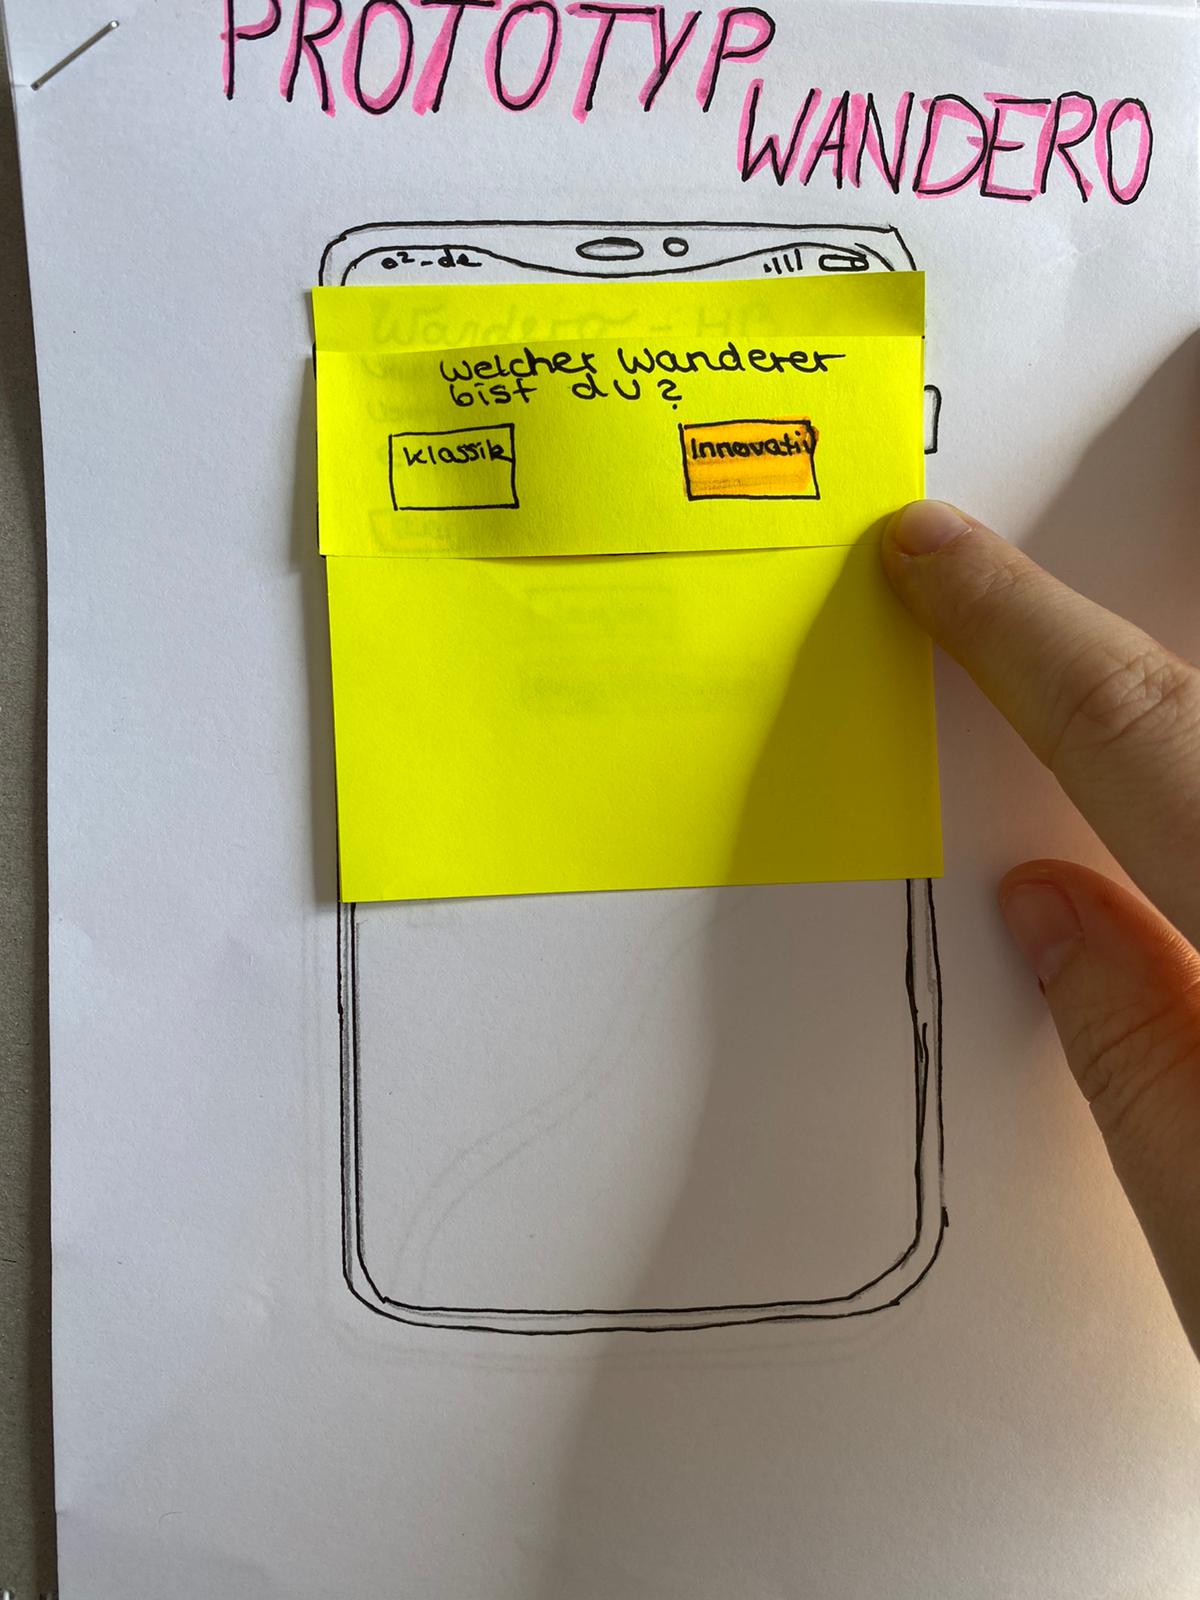 PROTOTYP
WANDERO
o²-de
Wandero - HB
Welcher Wanderer
bist du?
Klassik
Innovativ